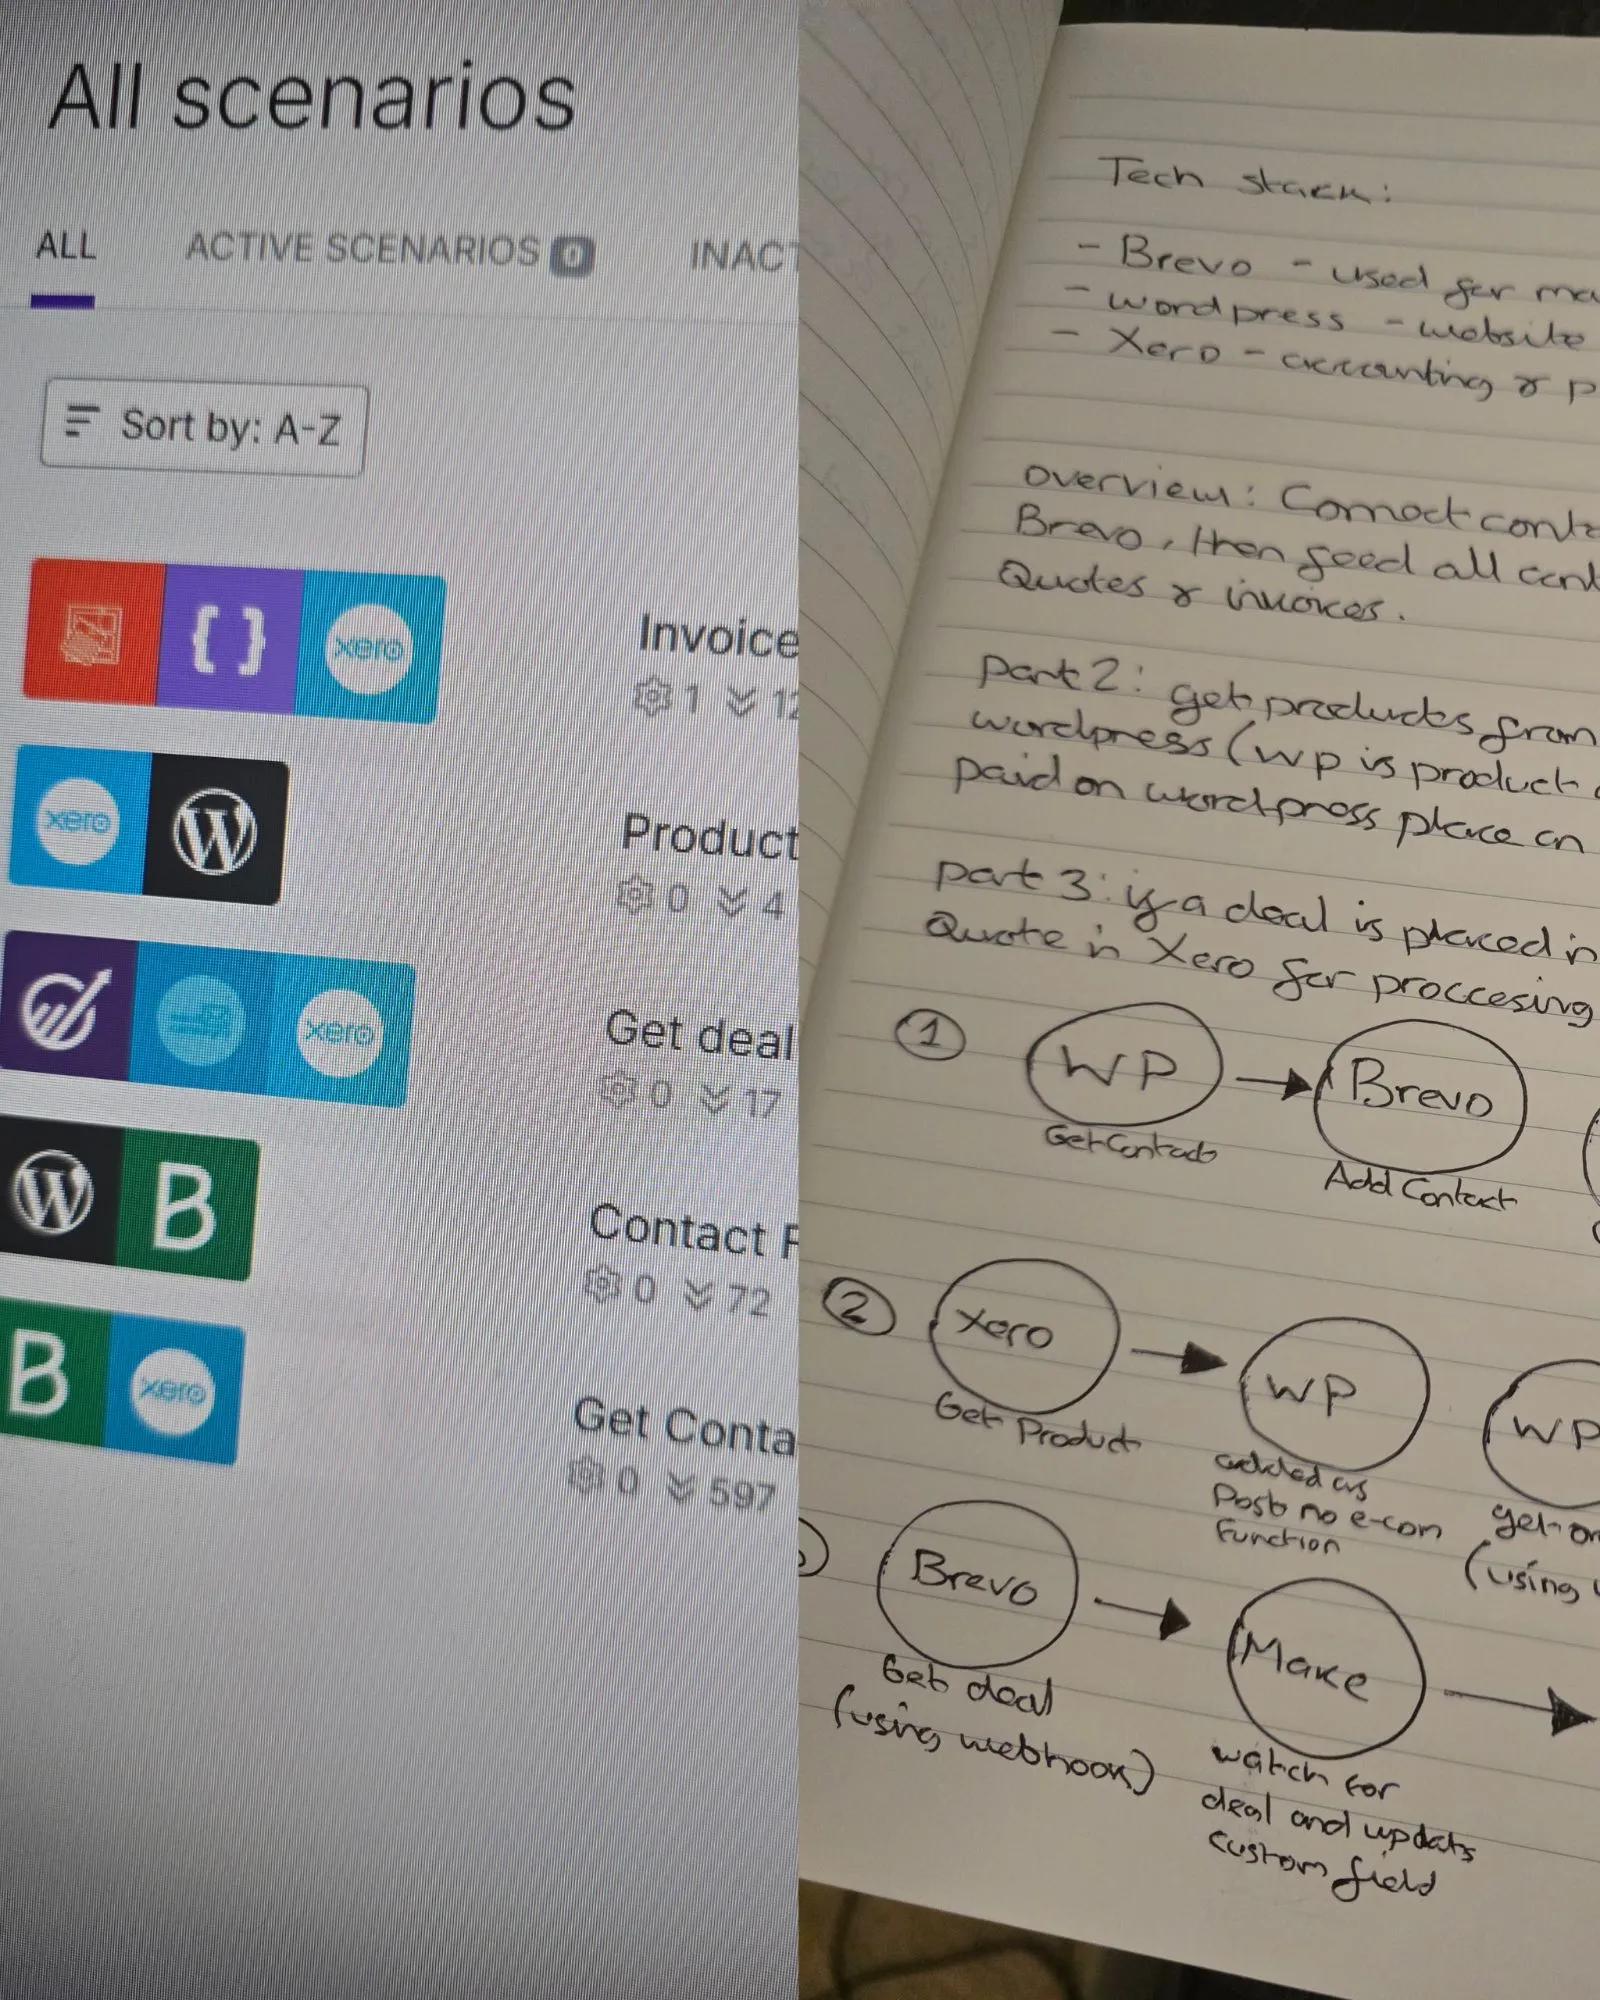 All scenarios
ALL ACTIVE SCENARIOS 0 INACT
Sort by: A-Z
{ } xero
Invoice
1 12
xero
Product
0 4
xero
Get deal
0 17
B
Contact F
0 72
B xero
Get Conta
0 597
Tech stack:
- Brevo - used for ma
- wordpress - website
- Xero - accounting & p
overview: Connect conta
Brevo, then feed all cont
Quotes & invoices.
part 2: get products from
wordpress (WP is product
paid on wordpress place an
part 3: if a deal is placed in
Quote in Xero for proccesing
1 WP Brevo
Get Contact Add Contact
2 Xero WP WP
Get Product added as get or
Posts no e-com (using
Function
Brevo Make
Get deal watch for
(using webhook) deal and update
custom field